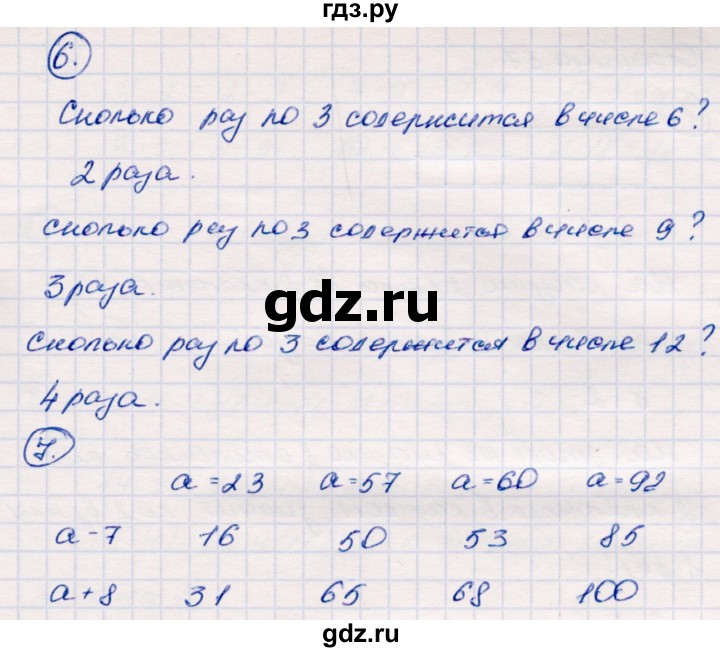 гдз.ру
6.
Сколько раз по 3 содержится в числе 6?
2 раза.
Сколько раз по 3 содержится в числе 9?
3 раза.
gdz.ru
Сколько раз по 3 содержится в числе 12?
4 раза.
7.
a = 23 a = 57 a = 60 a = 92
a - 7 16 50 53 85
a + 8 31 65 68 100
gdz.ru